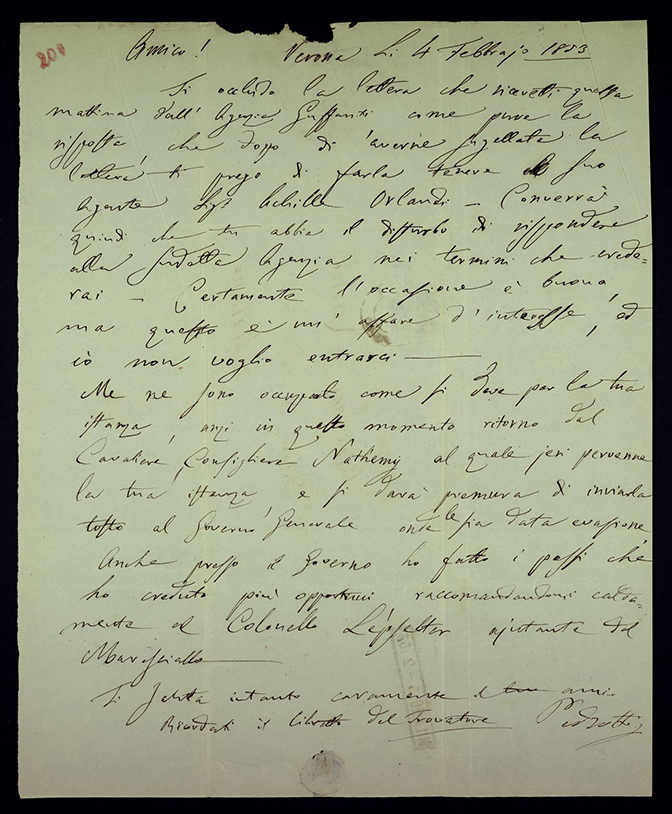 200
Amico! Verona Li 4 Febbrajo 1853
Ti occludo la lettera che ricevetti questa
mattina dall' Agenzia Guffanti come pure la
risposta, che dopo di averne sugellata la
lettera ti prego di farla tenere al suo
Agente Sigr Achille Orlandi – Converrà
quindi che tu abbia il disturbo di rispondere
alla sudetta Agenzia nei termini che crede=
rai – Certamente l'occasione è buona,
ma questo è un' affare d'interesse, ed
io non voglio entrarci –
Me ne sono occupato come si deve per la tua
istanza, anzi in questo momento ritorno dal
Cavaliere Consigliere al quale jeri pervenne
la tua istanza, e si darà premura di inviarla
tosto al Governo Generale onde le sia data evasione
Anche presso il Governo ho fatto i passi che
ho creduto più opportuni raccomandandomi calda=
mente al Colonello ajutante del
Maresciallo
Ti saluta intanto caramente il tuo amico
Ricordati il libretto del Trovatore Pedrotti